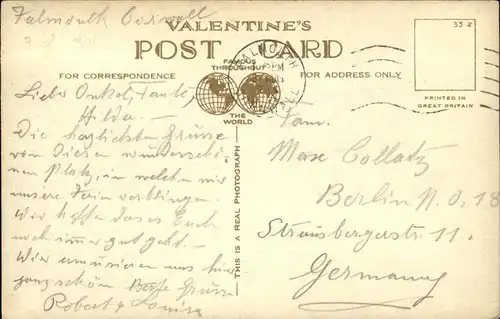 Falmouth Cornwall
VALENTINE'S
POST CARD
FAMOUS
THROUGHOUT
THE
WORLD
FOR CORRESPONDENCE
FOR ADDRESS ONLY
33 Z
PRINTED IN
GREAT BRITAIN
FALMOUTH
THIS IS A REAL PHOTOGRAPH
Liebe Onkel, Tante,
Hilda. —
Die herzlichsten Grüsse
von diesen wunderschö-
nen Platz, in welchen wir
unsere Ferien verbringen.
Wir hoffe dass es Euch
noch immer gut geht. —
Wir amusieren uns hier
ganz schön Beste Grüsse
Robert & Louise
Fam.
Max Collatz
Berlin N.O. 18
Strausbergerstr. 11.
Germany